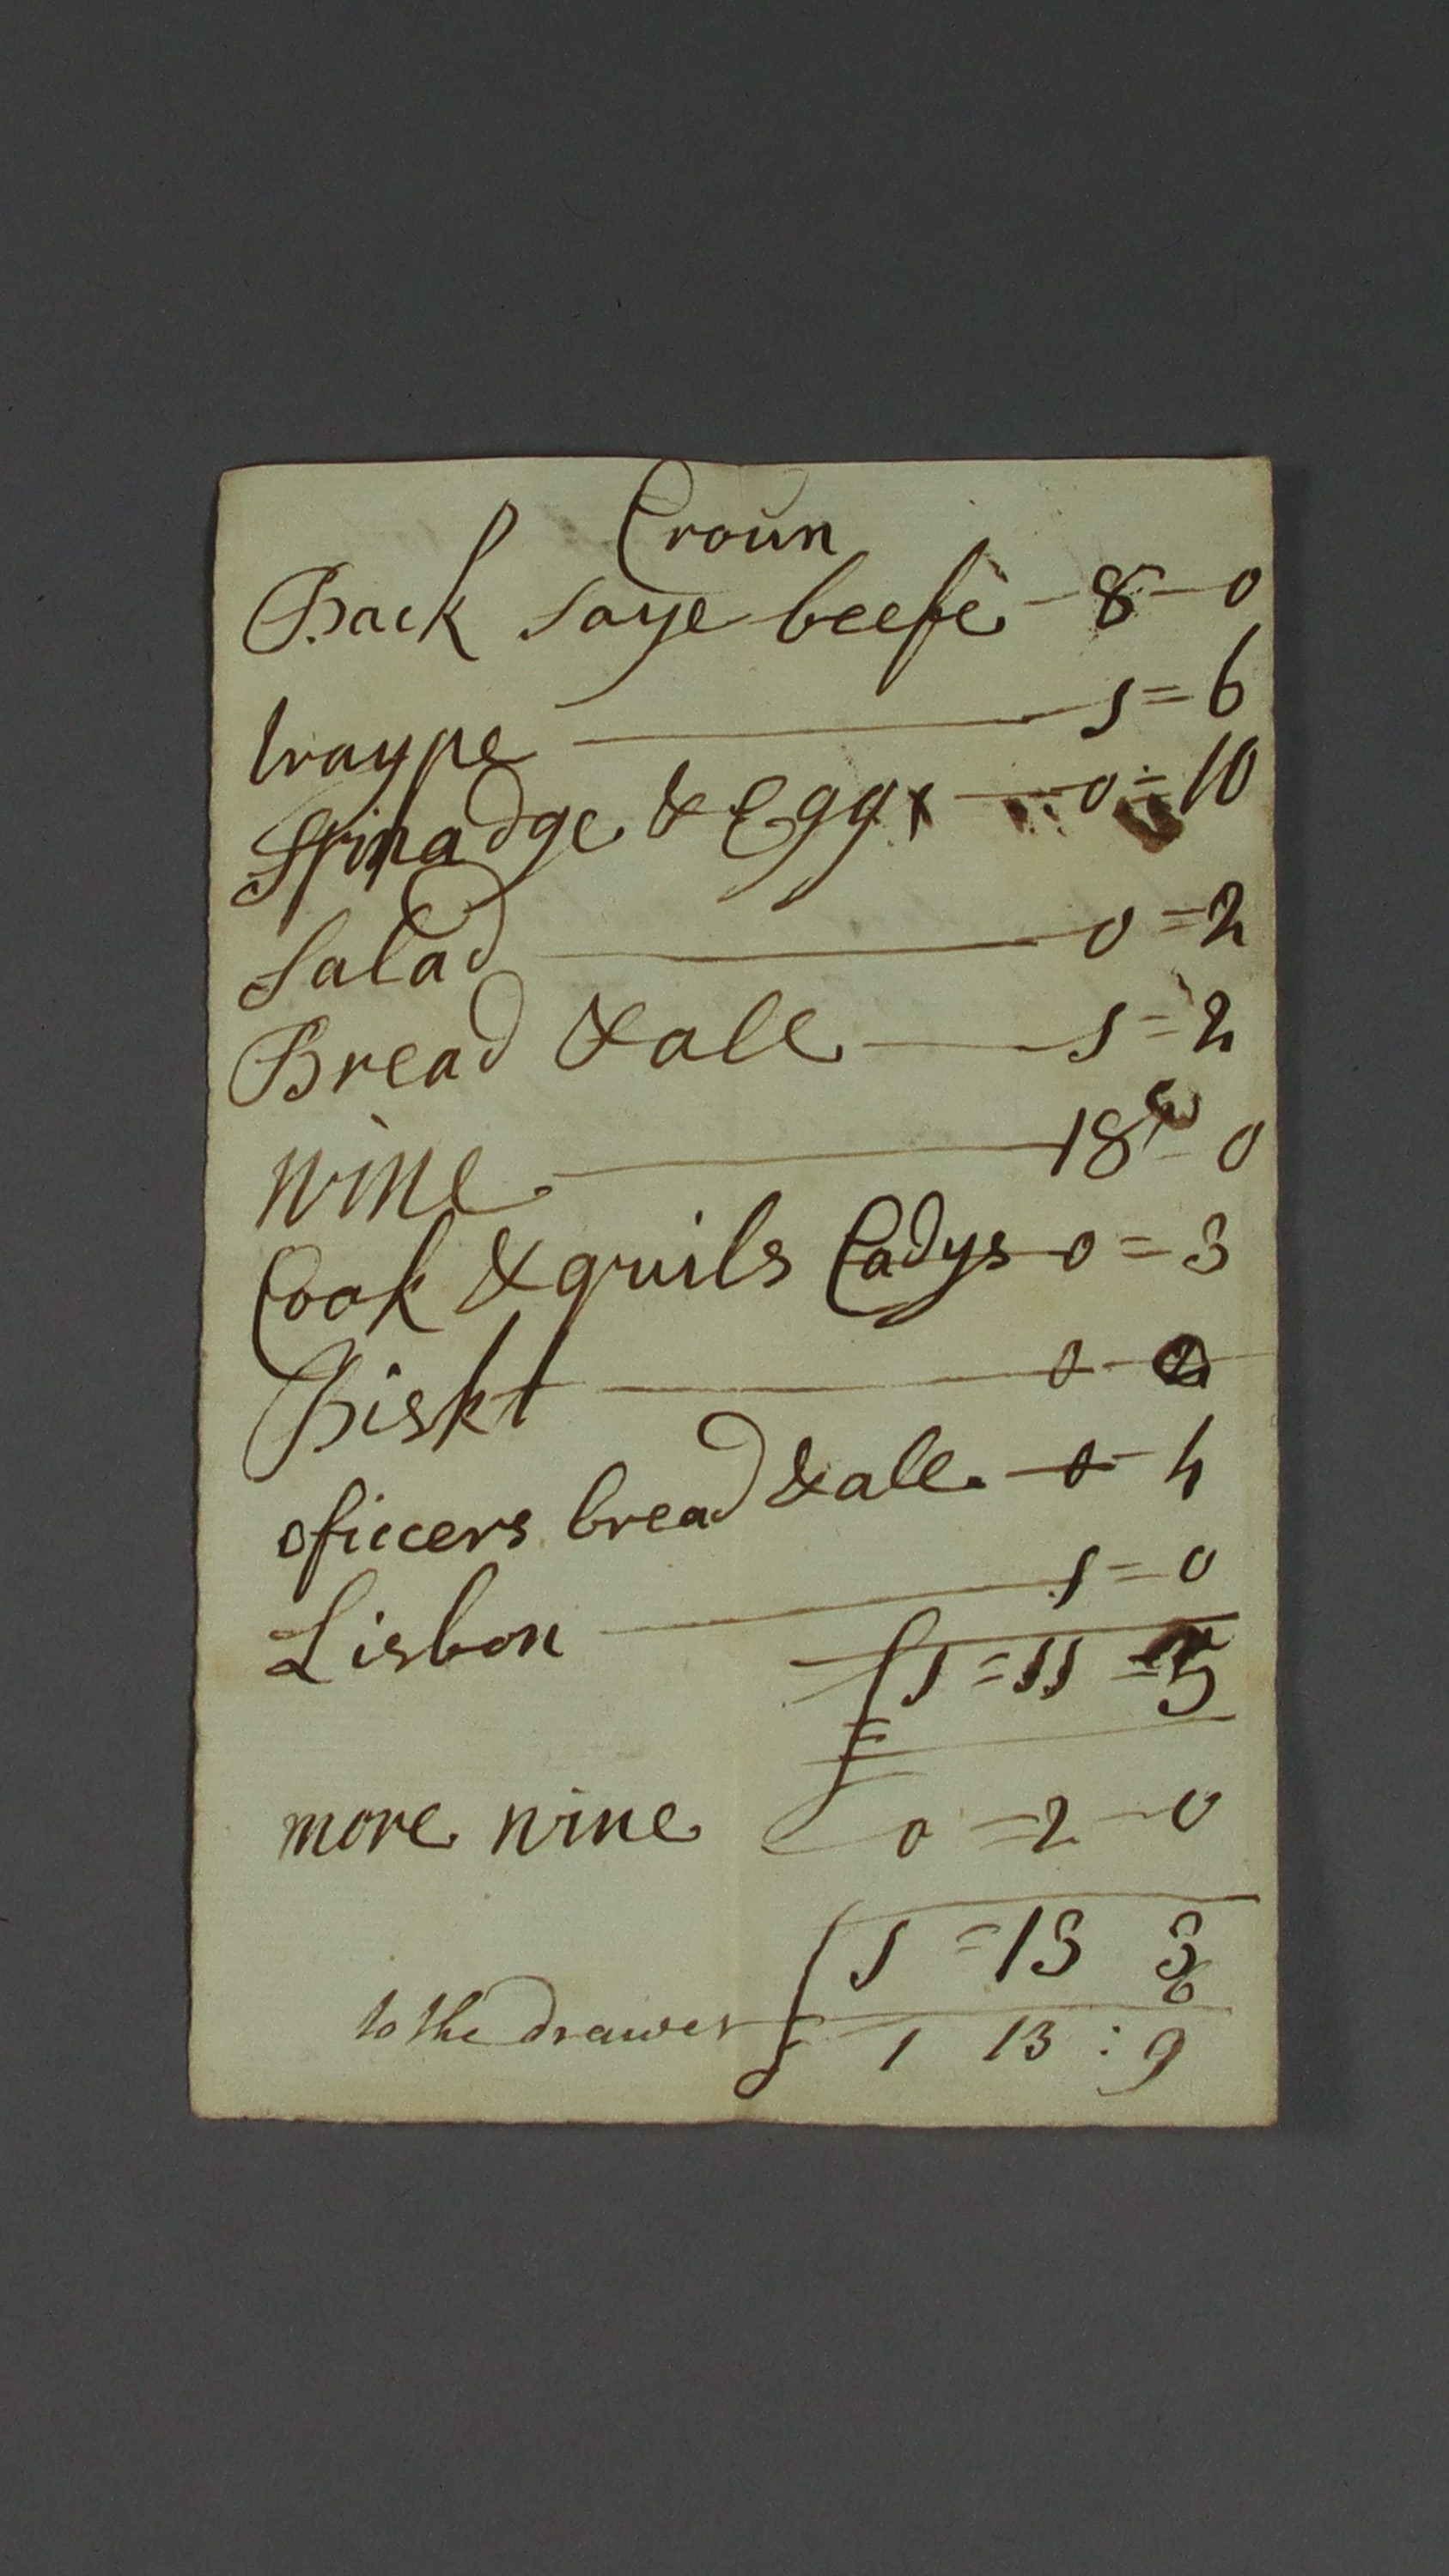 Croun
Back saye beefe - 8 - 0
traype — 1 = 6
Spinadge & Eggs — 0 = 10
Salad — 0 = 2
Bread & ale — 1 = 2
wine — 18 - 0
Cook & quils Cadys - 0 = 3
Biskt — 0 - 2
oficcers bread & ale - 0 - 4
Lisbon — 1 = 0
1 = 11 = 5
more wine 0 = 2 - 0
1 = 13
to the drawer 1 13 : 9